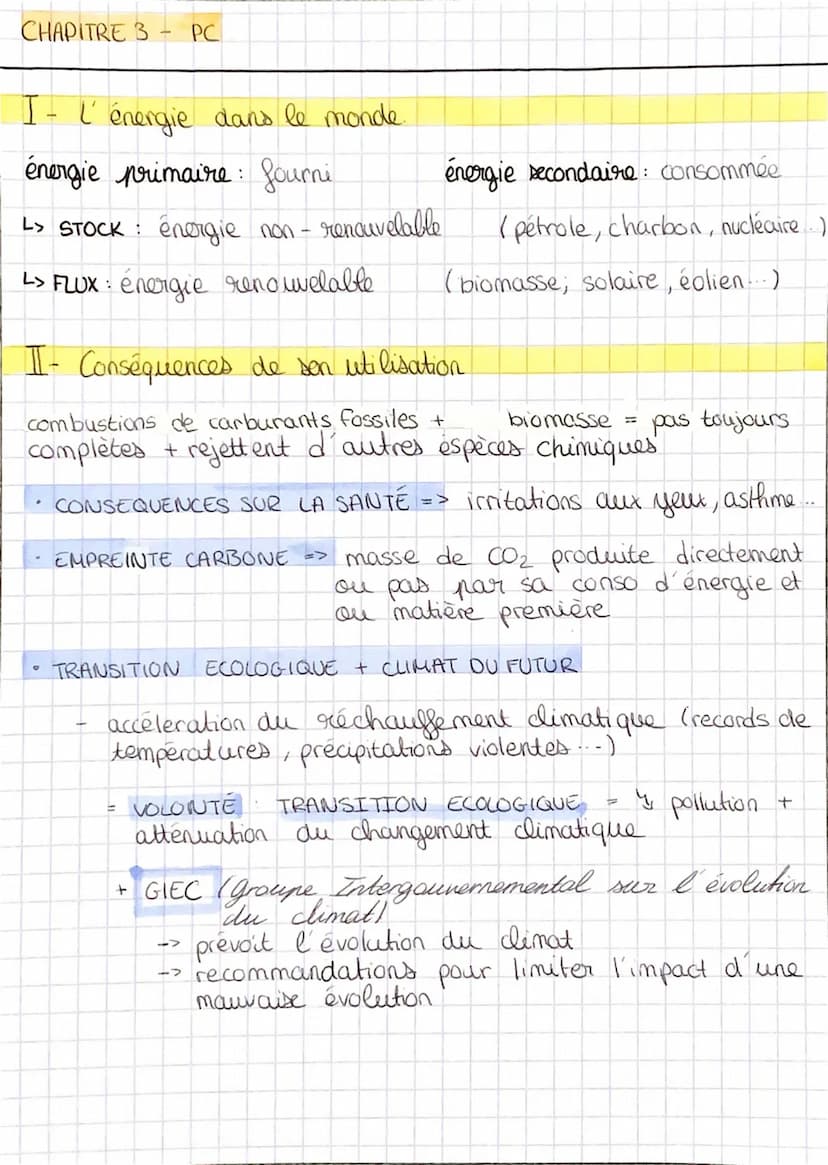 CHAPITRE 3 - PC
I - L'énergie dans le monde.
énergie primaire : fourni énergie secondaire : consommée
↳ STOCK : énergie non-renouvelable (pétrole, charbon, nucléaire...)
↳ FLUX : énergie renouvelable (biomasse; solaire, éolien...)
II- Conséquences de son utilisation
combustions de carburants fossiles + biomasse = pas toujours
complètes + rejettent d'autres espèces chimiques
• CONSEQUENCES SUR LA SANTÉ => irritations aux yeux, asthme...
• EMPREINTE CARBONE => masse de CO₂ produite directement
ou pas par sa conso d'énergie et
ou matière première
• TRANSITION ECOLOGIQUE + CLIMAT DU FUTUR
- accéleration du réchauffement climatique (records de
températures, précipitations violentes...)
= VOLONTÉ : TRANSITION ECOLOGIQUE = ↘ pollution +
atténuation du changement climatique
+ GIEC (Groupe Intergouvernemental sur l'évolution
du climat)
-> prévoit l'évolution du climat
-> recommandations pour limiter l'impact d'une
mauvaise évolution